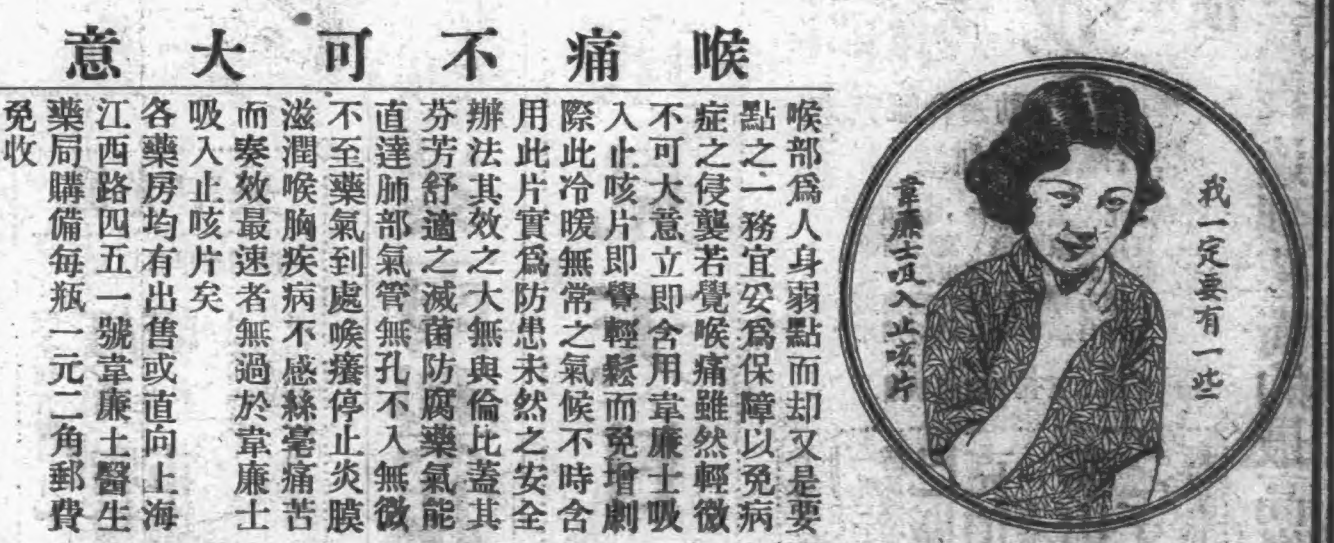 喉痛不可大意
我一定要有一些
韋廉士吸入止咳片
喉部爲人身弱點而却又是要
點之一務宜妥爲保障以免病
症之侵襲若覺喉痛雖然輕微
不可大意立即含用韋廉士吸
入止咳片即覺輕鬆而免增劇
際此冷暖無常之氣候不時含
用此片實爲防患未然之安全
辦法其效之大無與倫比蓋其
芬芳舒適之滅菌防腐藥氣能
直達肺部氣管無孔不入無微
不至藥氣到處喉癢停止炎膜
滋潤喉胸疾病不感絲毫痛苦
而奏效最速者無過於韋廉士
吸入止咳片矣
各藥房均有出售或直向上海
江西路四五一號韋廉士醫生
藥局購備每瓶一元二角郵費
免收